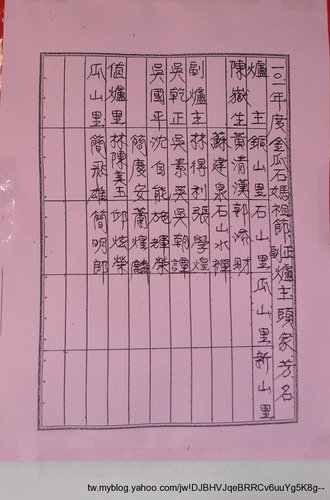 一○.年度金瓜石媽祖師正副爐主頭家芳名
爐主 銅山里 石山里 瓜山里 新山里
陳嶽生 黃清漢 郭流財
蘇建泉 石山水
副爐主 林得利 張學煌
吳乾正 吳素英 吳朝譚
吳國平 沈自能 施耀榮
簡慶安 蕭煌麟
值爐里 林陳美玉 邱炫榮
瓜山里 簡飛雄 簡明郎
tw.myblog.yahoo.com/jw!DJBHVJqeBRRCv6uuYg5K8g--